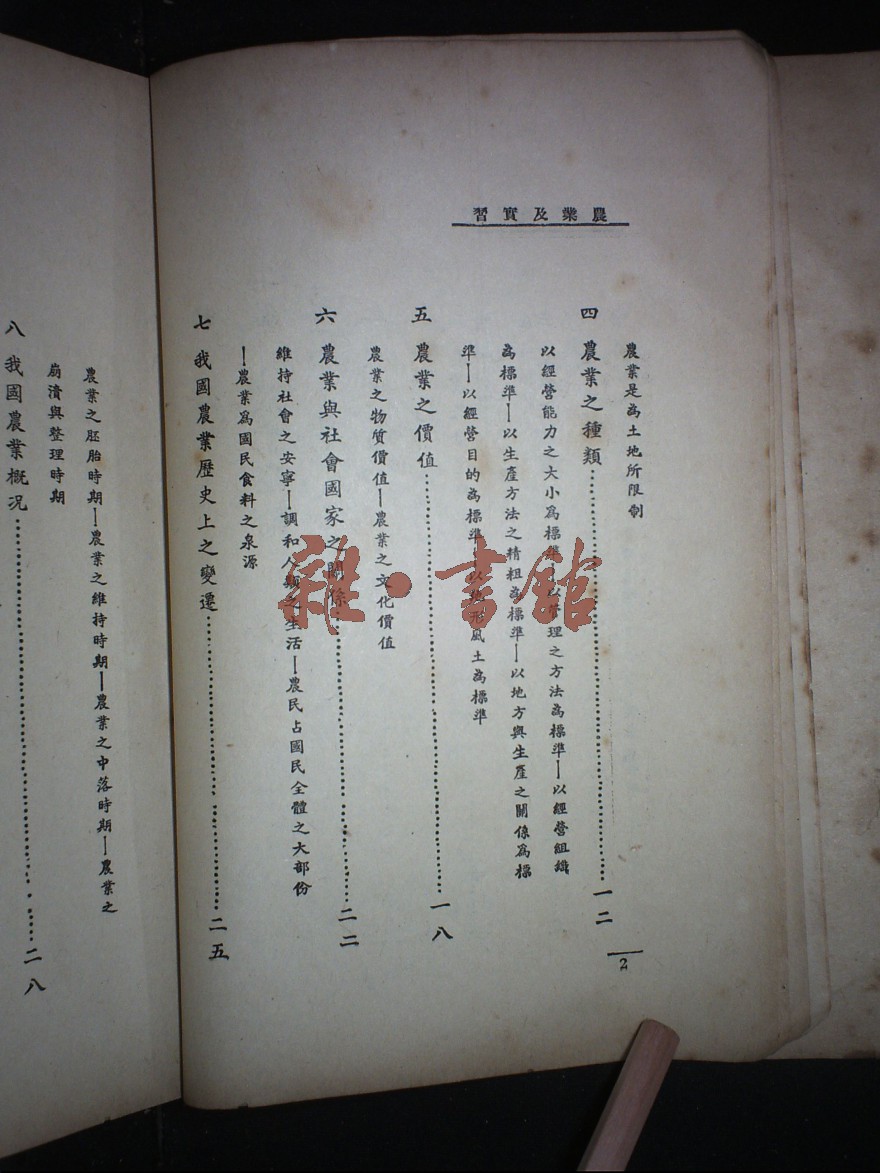 農業及實習
農業是為土地所限制
四 農業之種類……一二
以經營能力之大小為標準—以管理之方法為標準—以經營組織
為標準—以生產方法之精粗為標準—以地方與生產之關係為標
準—以經營目的為標準—以地形風土為標準
五 農業之價值……一八
農業之物質價值—農業之文化價值
六 農業與社會國家之關係……二二
維持社會之安寧—調和人類之生活—農民占國民全體之大部份
—農業為國民食料之泉源
七 我國農業歷史上之變遷……二五
2
農業之胚胎時期—農業之維持時期—農業之中落時期—農業之
崩潰與整理時期
八 我國農業概况……二八
雜·書館